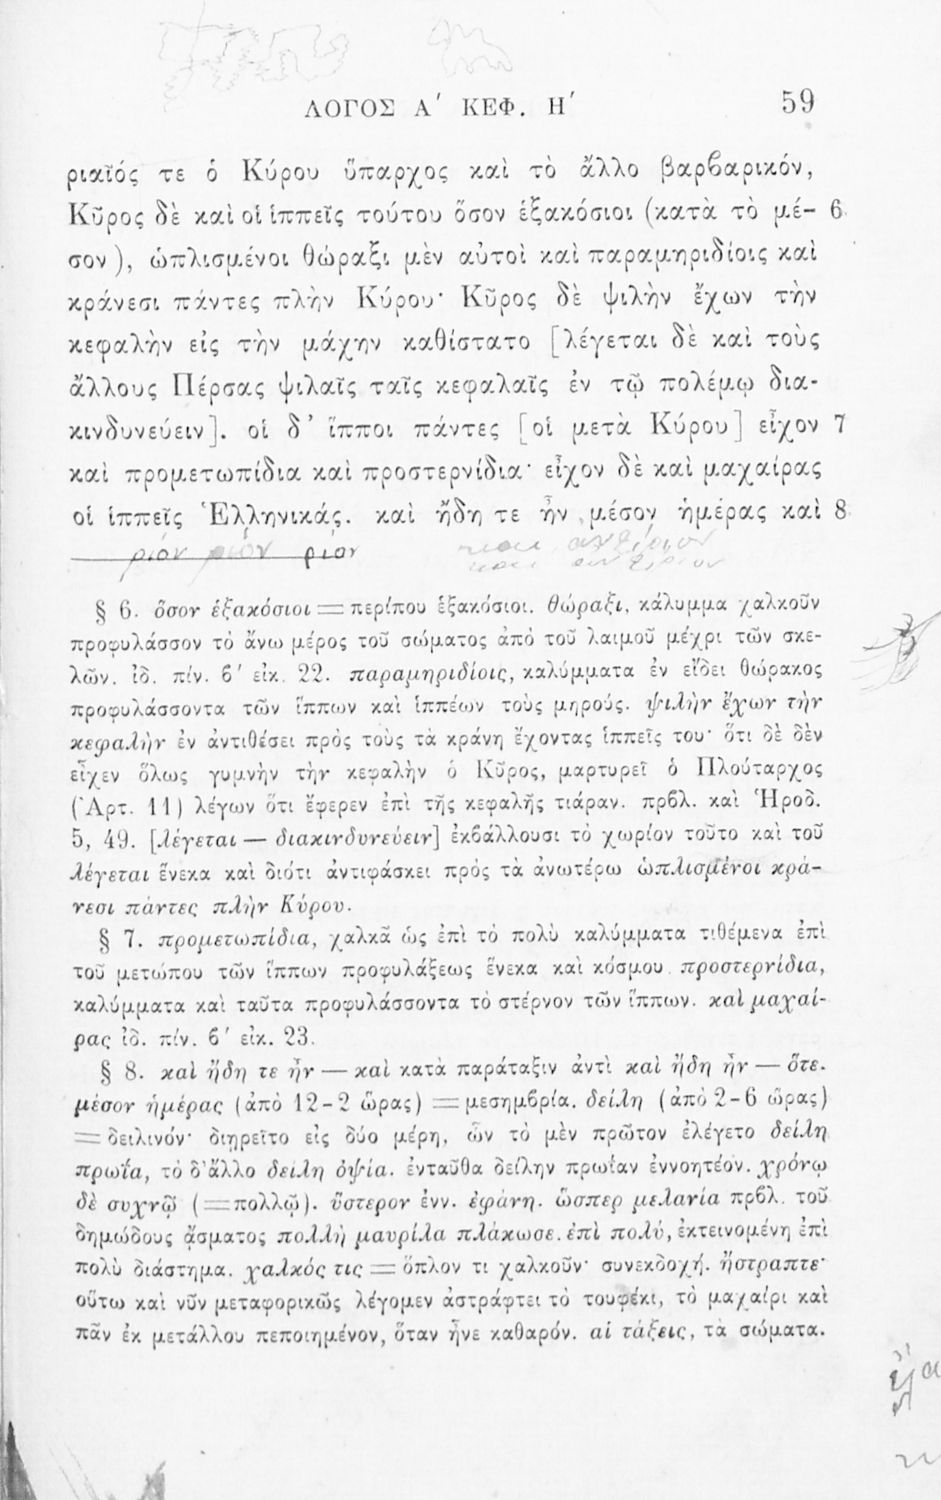 ΛΟΓΟΣ Α΄ ΚΕΦ. Η΄ 59
ριαῖός τε ὁ Κύρου ὕπαρχος καὶ τὸ ἄλλο βαρβαρικόν,
Κῦρος δὲ καὶ οἱ ἱππεῖς τούτου ὅσον ἑξακόσιοι (κατὰ τὸ μέ- 6
σον), ὡπλισμένοι θώραξι μὲν αὐτοὶ καὶ παραμηριδίοις καὶ
κράνεσι πάντες πλὴν Κύρου· Κῦρος δὲ ψιλὴν ἔχων τὴν
κεφαλὴν εἰς τὴν μάχην καθίστατο [λέγεται δὲ καὶ τοὺς
ἄλλους Πέρσας ψιλαῖς ταῖς κεφαλαῖς ἐν τῷ πολέμῳ δια-
κινδυνεύειν]. οἱ δ᾽ ἵπποι πάντες [οἱ μετὰ Κύρου] εἶχον 7
καὶ προμετωπίδια καὶ προστερνίδια· εἶχον δὲ καὶ μαχαίρας
οἱ ἱππεῖς Ἑλληνικάς. καὶ ἤδη τε ἦν μέσον ἡμέρας καὶ 8
ριόν ριον ριον
§ 6. ὅσον ἑξακόσιοι = περίπου ἑξακόσιοι. θώραξι, κάλυμμα χαλκοῦν
προφυλάσσον τὸ ἄνω μέρος τοῦ σώματος ἀπὸ τοῦ λαιμοῦ μέχρι τῶν σκε-
λῶν. ἰδ. πίν. β΄ εἰκ. 22. παραμηριδίοις, καλύμματα ἐν εἴδει θώρακος
προφυλάσσοντα τῶν ἵππων καὶ ἱππέων τοὺς μηρούς. ψιλὴν ἔχων τὴν
κεφαλὴν ἐν ἀντιθέσει πρὸς τοὺς τὰ κράνη ἔχοντας ἱππεῖς του· ὅτι δὲ δὲν
εἶχεν ὅλως γυμνὴν τὴν κεφαλὴν ὁ Κῦρος, μαρτυρεῖ ὁ Πλούταρχος
(Ἀρτ. 11) λέγων ὅτι ἔφερεν ἐπὶ τῆς κεφαλῆς τιάραν. πρβλ. καὶ Ἡροδ.
5, 49. [λέγεται — διακινδυνεύειν] ἐκβάλλουσι τὸ χωρίον τοῦτο καὶ τοῦ
λέγεται ἕνεκα καὶ διότι ἀντιφάσκει πρὸς τὰ ἀνωτέρω ὡπλισμένοι κρά-
νεσι πάντες πλὴν Κύρου.
§ 7. προμετωπίδια, χαλκᾶ ὡς ἐπὶ τὸ πολὺ καλύμματα τιθέμενα ἐπὶ
τοῦ μετώπου τῶν ἵππων προφυλάξεως ἕνεκα καὶ κόσμου. προστερνίδια,
καλύμματα καὶ ταῦτα προφυλάσσοντα τὸ στέρνον τῶν ἵππων. καὶ μαχαί-
ρας ἰδ. πίν. β΄ εἰκ. 23.
§ 8. καὶ ἤδη τε ἦν — καὶ κατὰ παράταξιν ἀντὶ καὶ ἤδη ἦν — ὅτε.
μέσον ἡμέρας (ἀπὸ 12-2 ὥρας) = μεσημβρία. δείλη (ἀπὸ 2-6 ὥρας)
= δειλινόν· διῃρεῖτο εἰς δύο μέρη, ὧν τὸ μὲν πρῶτον ἐλέγετο δείλη
πρωΐα, τὸ δ᾽ ἄλλο δείλη ὀψία. ἐνταῦθα δείλην πρωΐαν ἐννοητέον. χρόνῳ
δὲ συχνῷ (= πολλῷ). ὕστερον ἐνν. ἐφάνη. ὥσπερ μελανία πρβλ. τοῦ
δημώδους ᾄσματος πολλὴ μαυρίλα πλάκωσε. ἐπὶ πολύ, ἐκτεινομένη ἐπὶ
πολὺ διάστημα. χαλκός τις = ὅπλον τι χαλκοῦν· συνεκδοχή. ἤστραπτε·
οὕτω καὶ νῦν μεταφορικῶς λέγομεν ἀστράφτει τὸ τουφέκι, τὸ μαχαίρι καὶ
πᾶν ἐκ μετάλλου πεποιημένον, ὅταν ἦνε καθαρόν. αἱ τάξεις, τὰ σώματα.